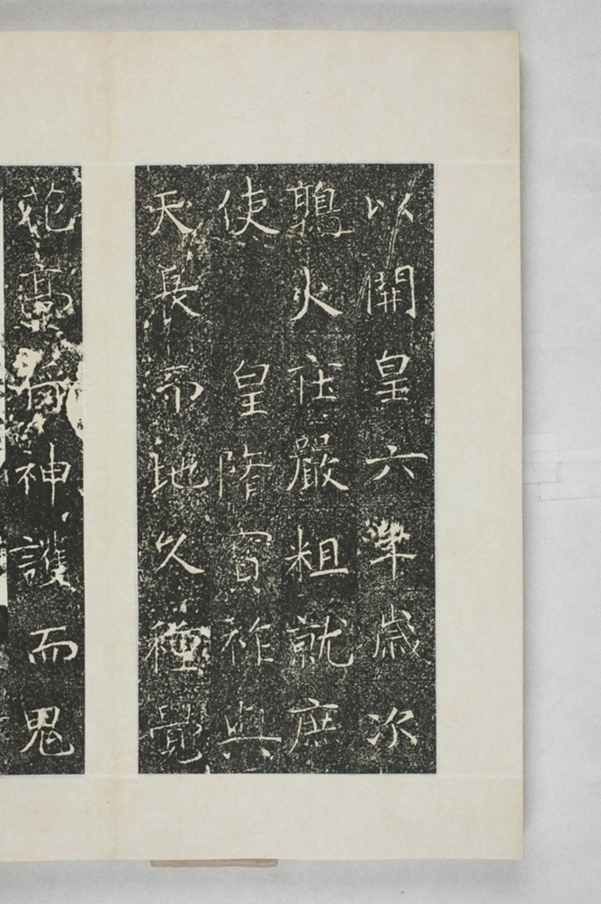 以開皇六年歲次
鶉火莊嚴粗就庶
使皇隋寶祚與
天長而地久種覺
花臺神護而鬼